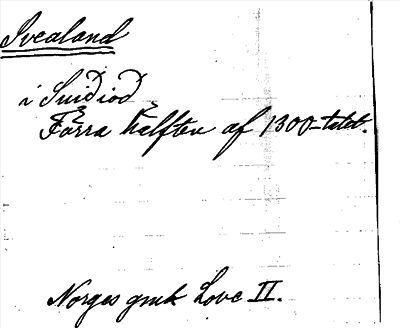 Svealand
i Suiðiod
Förra hälften af 1300-talet.
Norges gmle Love II.